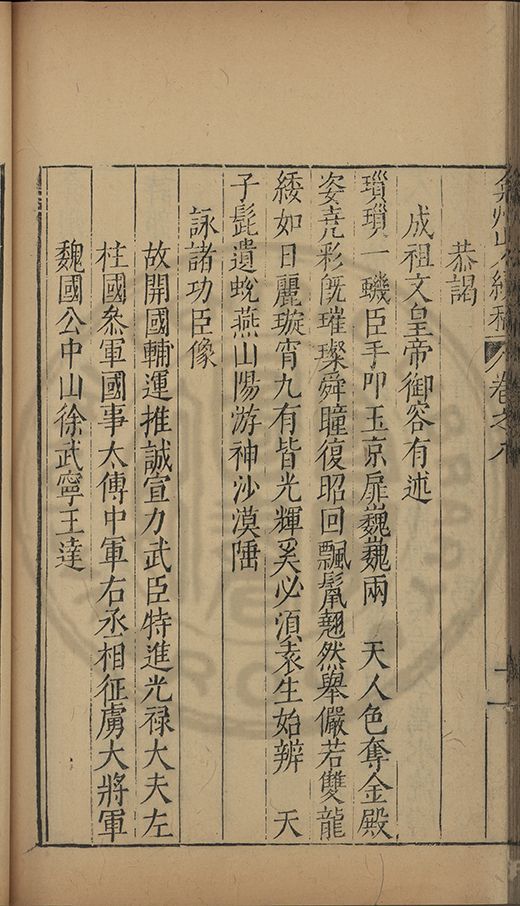 弇州山人續稿 卷之八
恭謁
成祖文皇帝御容有述
瑣瑣一蟣臣手叩玉京扉巍巍兩 天人色奪金殿
姿堯彩旣璀璨舜瞳復昭回飄鬣翹然舉儼若雙龍
綏如日麗璇宵九有皆光輝奚必須袁生始辨 天
子髭遺蛻燕山陽游神沙漠陲
詠諸功臣像
故開國輔運推誠宣力武臣特進光禄大夫左
柱國叅軍國事太傅中軍右丞相征虜大將軍
魏國公中山徐武寧王達